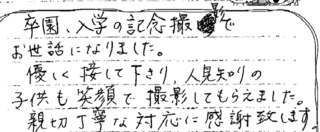 卒園、入学の記念撮影で
お世話になりました。
優しく接して下さり、人見知りの
子供も笑顔で撮影してもらえました。
親切丁寧な対応に感謝致します。